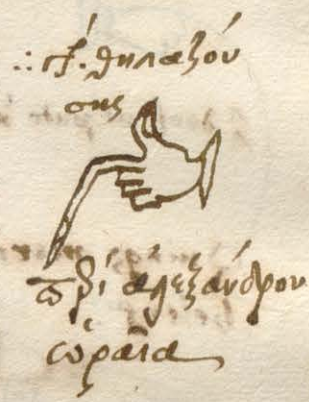 θηλαζού
σης
περὶ ἀλεξάνδρου
ὡραῖα